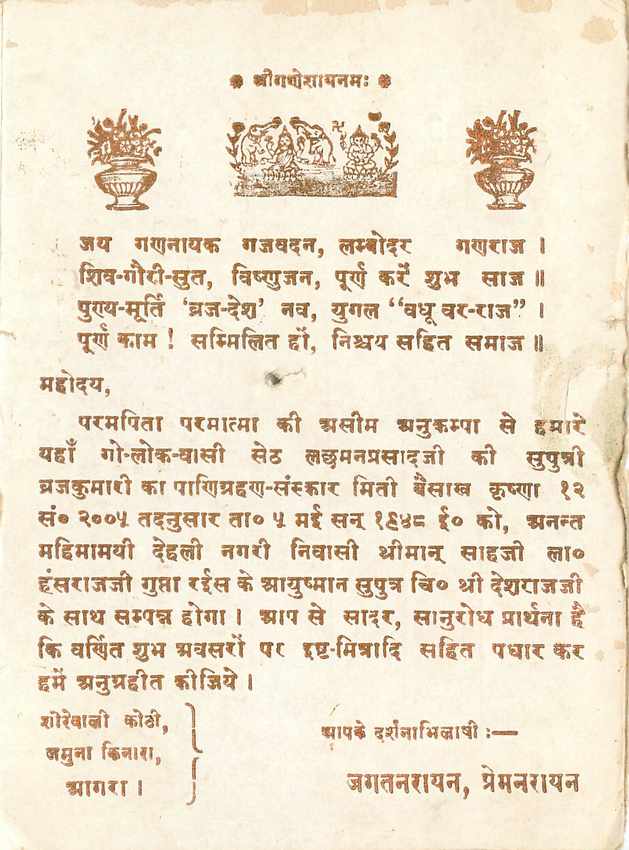 श्रीगणेशायनमः
जय गणनायक गजवदन, लम्बोदर गणराज ।
शिव-गौरी-सुत, विष्णुजन, पूर्ण करें शुभ साज ॥
पुण्य-मूर्ति ‘व्रज-देश’ नव, युगल “वधू वर-राज” ।
पूर्ण काम ! सम्मिलित हों, निश्चय सहित समाज ॥
महोदय,
परमपिता परमात्मा की असीम अनुकम्पा से हमारे
यहाँ गो-लोक-वासी सेठ लछमनप्रसादजी की सुपुत्री
ब्रजकुमारी का पाणिग्रहण-संस्कार मिती बैसाख कृष्णा १२
सं० २००५ तदनुसार ता० ५ मई सन् १९४८ ई० को, अनन्त
महिमामयी देहली नगरी निवासी श्रीमान् साहजी ला०
हंसराजजी गुप्ता रईस के आयुष्मान सुपुत्र चि० श्री देशराजजी
के साथ सम्पन्न होगा । आप से सादर, सानुरोध प्रार्थना है
कि वर्णित शुभ अवसरों पर इष्ट-मित्रादि सहित पधार कर
हमें अनुग्रहीत कीजिये ।
शोरेवाली कोठी,
जमुना किनारा,
आगरा ।
आपके दर्शनाभिलाषी :—
जगतनरायन, प्रेमनरायन